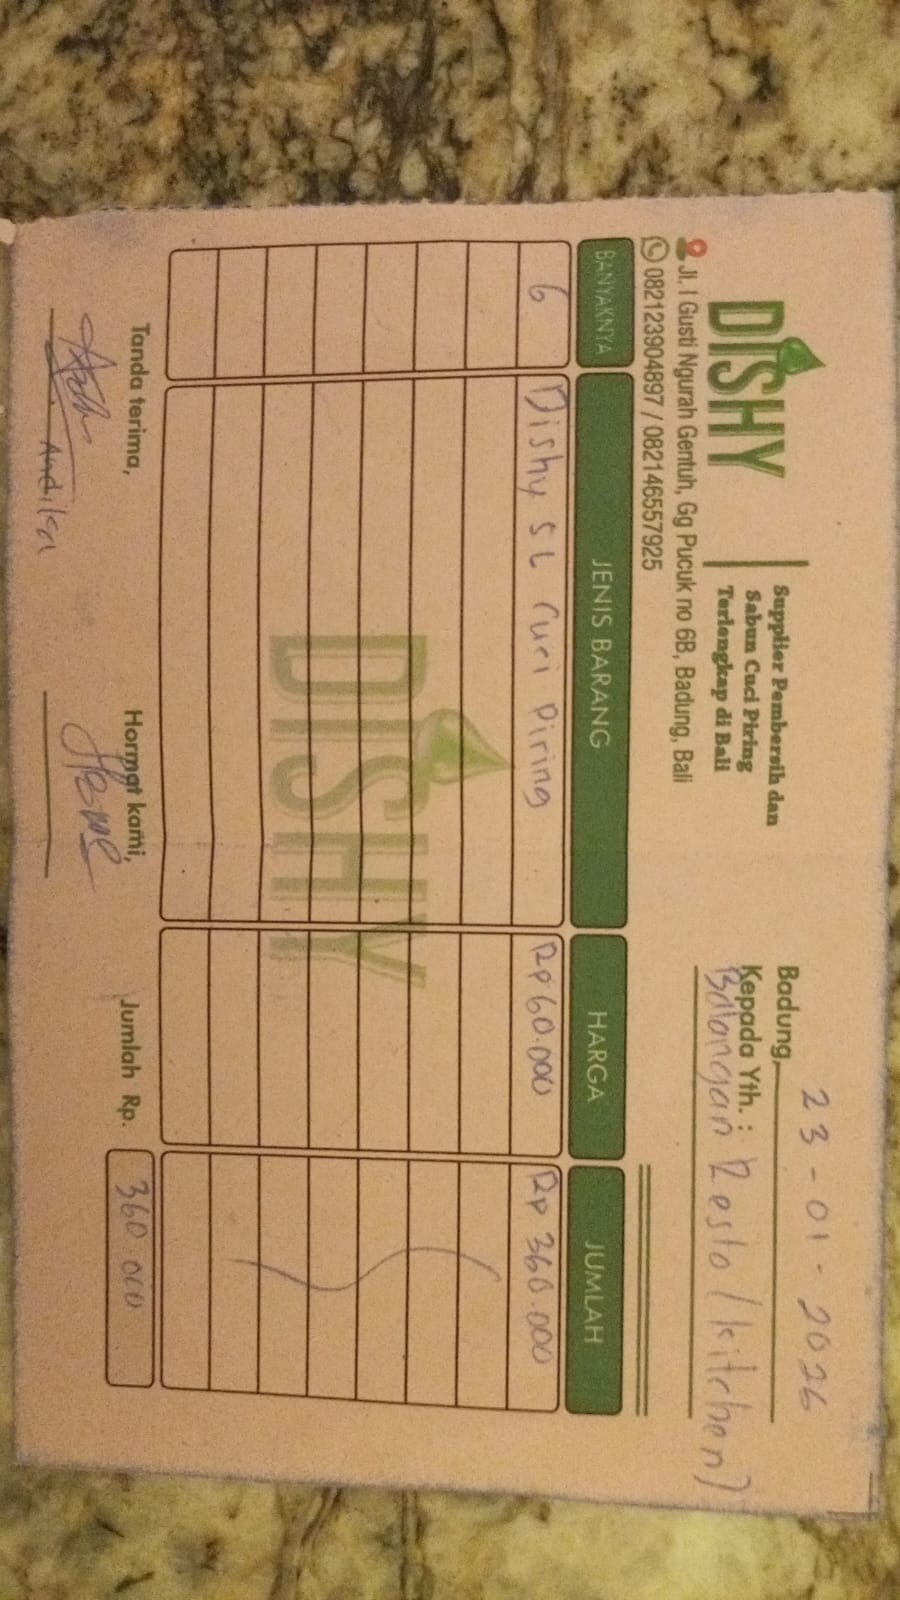 DISHY
Supplier Pembersih dan
Sabun Cuci Piring
Terlengkap di Bali
Jl. I Gusti Ngurah Gentuh, Gg Pucuk no 6B, Badung, Bali
082123904897 / 082146557925
Badung, 23-01-2026
Kepada Yth. :
Balangan Resto (kitchen)
BANYAKNYA JENIS BARANG HARGA JUMLAH
6 Dishy 5L Cuci Piring Rp 60.000 Rp 360.000
DISHY
Jumlah Rp. 360.000
Tanda terima, Hormat kami,
Andika